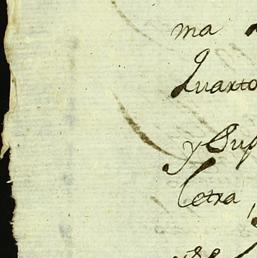 ma
Quarto
y Sup
letra,